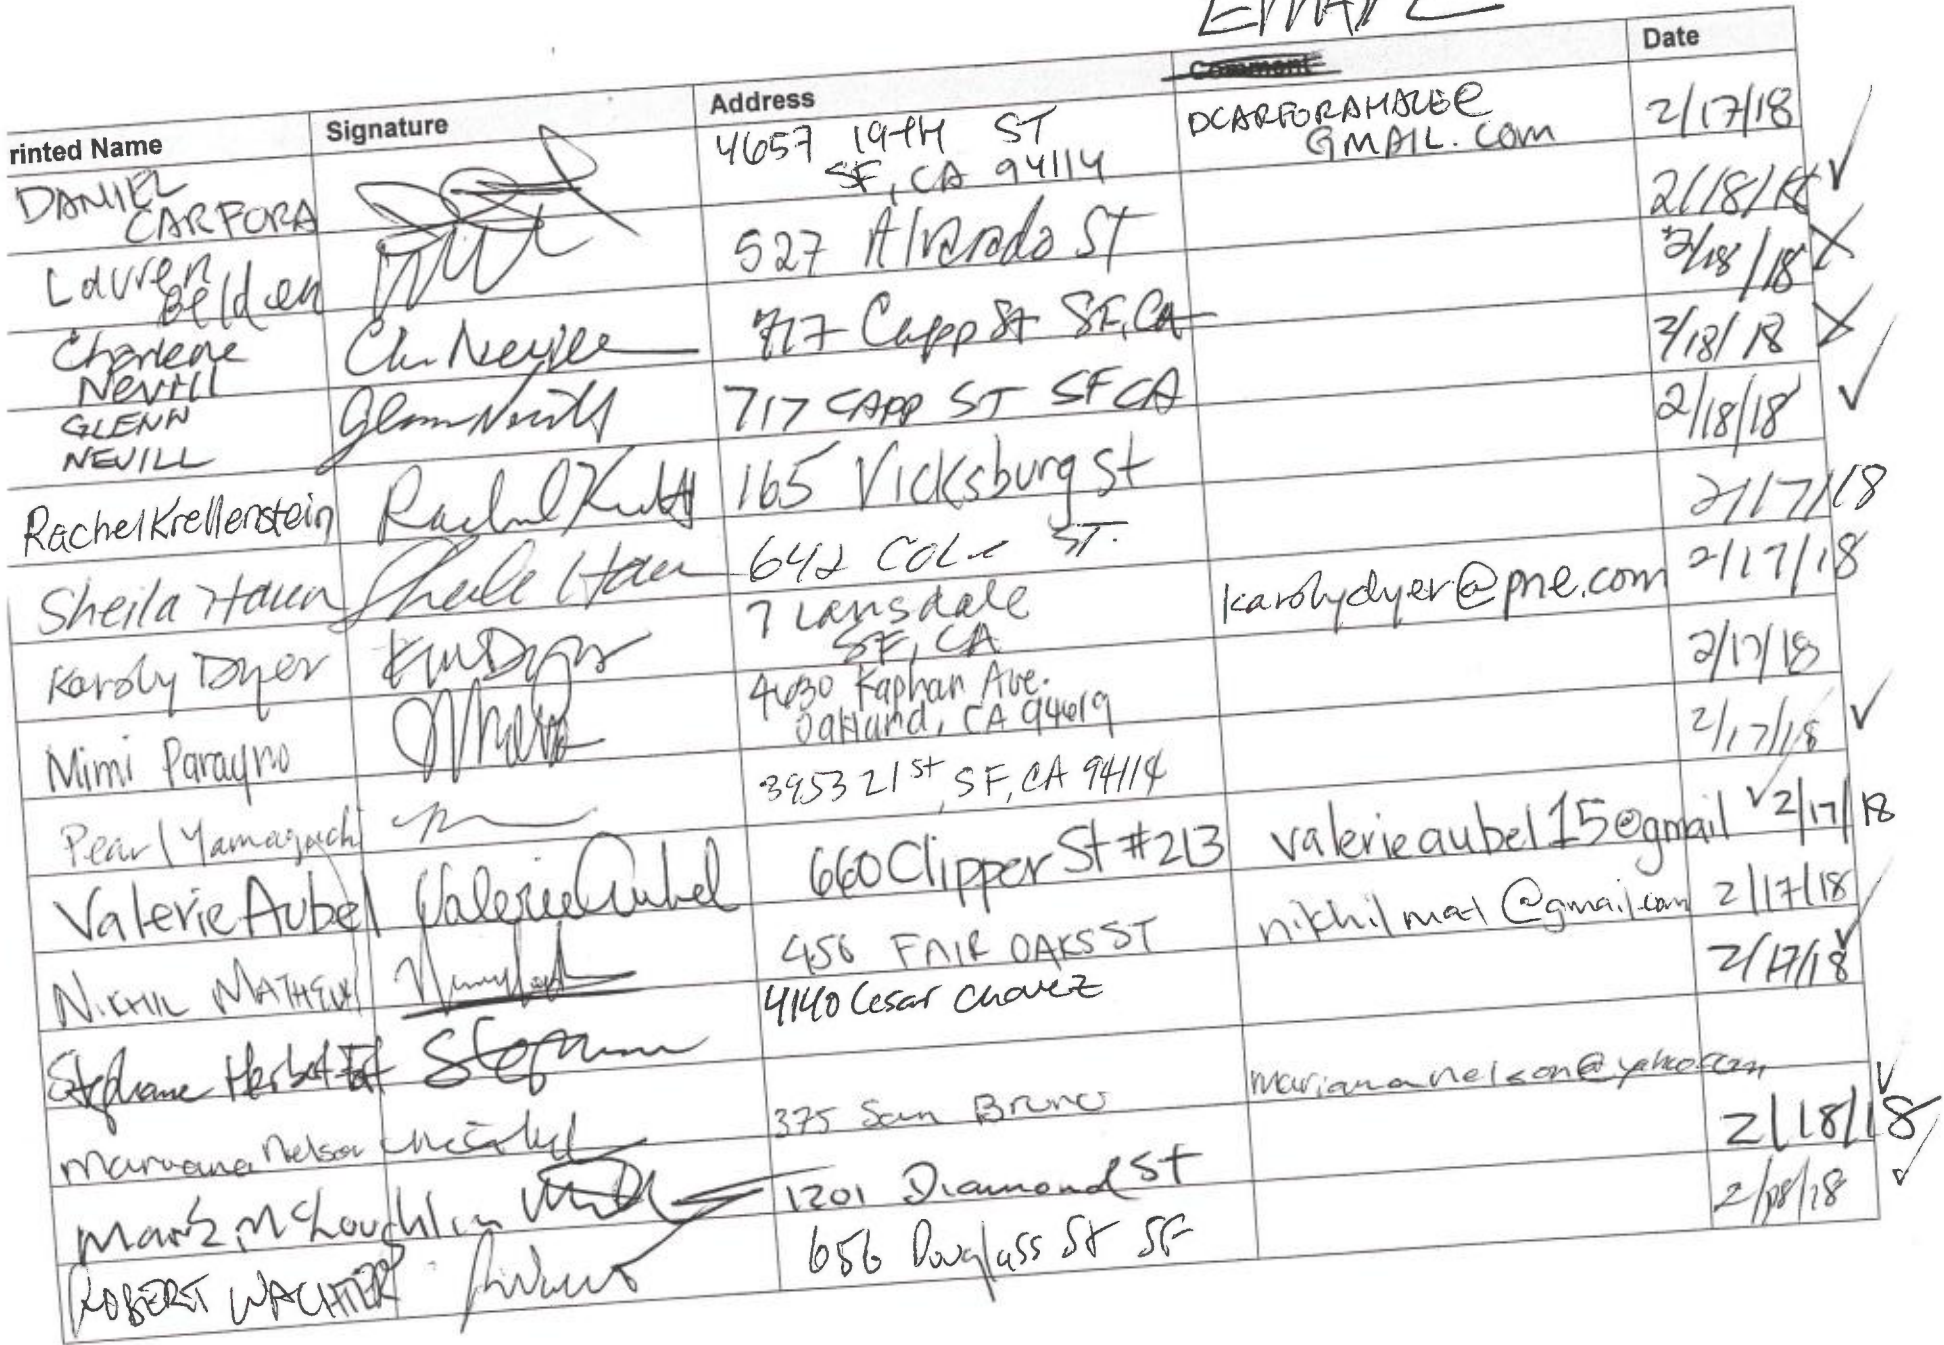 EMAIL
rinted Name Signature Address Comment Date
DANIEL CARFORA 4657 19TH ST SF, CA 94114 DCARFORAHALE@GMAIL.COM 2/17/18
Lauren Belden 527 Alvarado ST 2/18/18
Charlene Nevill 717 Capp St SF, CA 2/18/18
GLENN NEVILL Glenn Nevill 717 CAPP ST SF CA 2/18/18
Rachel Krellenstein 165 Vicksburg St 2/18/18
Sheila Haun 642 Cole ST. 2/17/18
Karoly Dyer 7 Lansdale SF, CA karolydyer@pne.com 2/17/18
Mimi Parayno 4630 Kaphan Ave. Oakland, CA 94619 2/17/18
Pearl Yamaguchi 3953 21st, SF, CA 94114 2/17/18
Valerie Aubel Valerie Aubel 660 Clipper St #213 valerieaubel15@gmail 2/17/18
NIKHIL MATHEW 456 FAIR OAKS ST nikhilmat@gmail.com 2/17/18
Stephane 4140 Cesar Chavez 2/17/18
Mariana Nelson 375 San Bruno mariananelson@yahoo.com
Mark McLoughlin 1201 Diamond St 2/18/18
ROBERT WACHTER 656 Douglass St SF 2/18/18